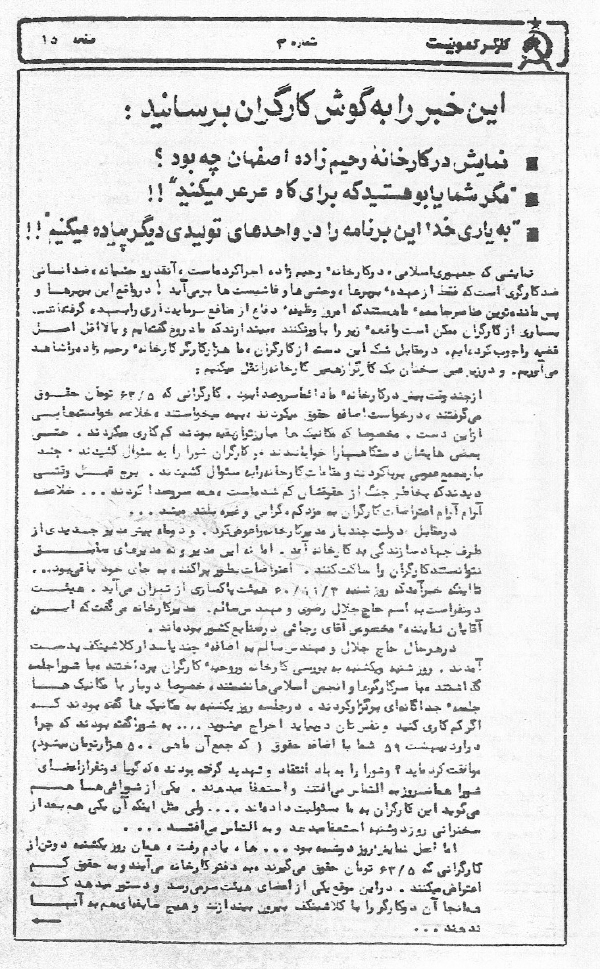 کارگر کمونیست
شماره ۳
صفحه ۱۵
این خبر را به گوش کارگران برسانید :
نمایش در کارخانهٔ رحیم زاده اصفهان چه بود ؟
"مگر شما یابو هستید که برای کاه عرعر میکنید" !!
"به یاری خدا این برنامه را در واحدهای تولیدی دیگر پیاده میکنیم" !!
نمایشی که جمهوری اسلامی، در کارخانه رحیم زاده اجرا کرده است، آنقدر وحشیانه، ضد انسانی
ضد کارگری است که فقط از عهده وحشی ها و فاشیست ها برمی‌آید ! در واقع این
پس مانده‌ترین عناصر جامعه ما هستند که امروز وظیفه دفاع از منافع سرمایه‌داری را بعهده گرفته‌اند.
بسیاری از کارگران ممکن است واقعه زیر را باور نکنند، بپندارند که ما دروغ گفته‌ایم و یا لااقل اصل
قضیه را چوب کرده‌ایم. در مقابل شک این دسته از کارگران، ما هزار کارگر کارخانه رحیم زاده را شاهد
می‌آوریم. و در زیر عین سخنان یک کارگر از همین کارخانه را نقل میکنیم :
از چند وقت پیش در کارخانه ما دائما سروصدا بود. کارگرانی که ۶۳/۵ تومان حقوق
می‌گرفتند، درخواست اضافه حقوق میکردند، بیمه میخواستند، خلاصه خواسته‌هایی
از این دست. مخصوصا که مکانیک ها مبارزتر از بقیه بودند کم‌کاری میکردند. حتی
بعضی هایشان دستگاهها را خوابانیدند و کارگران شورا را به سئوال کشیدند. چند
بار مجمع عمومی برپا کردند و مقامات کارخانه را به سئوال کشیدند. برج قبل وقتی
دیدند که بخاطر جنگ از حقوقشان کم شده است، همه سروصدا کردند ... خلاصه
آرام آرام اعتراضات کارگران به مزد کم، گرانی و غیره بلند میشد ...
در مقابل، دولت چند بار مدیر کارخانه را عوض کرد. و دو ماه پیش مدیر جدیدی از
طرف جهاد سازندگی به کارخانه آمد. اما نه این مدیر و نه مدیرهای سابق
نتوانستند کارگران را ساکت کنند. اعتراضات بطور پراکنده، به جای خود باقی بود...
تا اینکه خبر آمد که روز شنبه ۶۰/۱۱/۳ هیئت پاکسازی از تهران می‌آید. هیئت
دو نفر است به اسم حاج جلال رضوی و مهندس سالم. مدیر کارخانه می‌گفت که این
آقایان نماینده مخصوص آقای رجائی در صنایع کشور بوده‌اند.
در هر حال حاج جلال و مهندس سالم به اضافه چند پاسدار کلاشینکف بدست
آمدند. روز شنبه و یکشنبه به بررسی کارخانه و روحیه کارگران پرداختند، با شورا جلسه
گذاشتند، با سرکارگرها و انجمن اسلامی ها نشستند، خصوصا دوبار با مکانیک ها
جلسه جداگانه‌ای برگزار کردند. در جلسه روز یکشنبه به مکانیک ها گفته بودند که
اگر کم کاری کنید و نفس‌تان دربیاید اخراج میشوید .... به شورا گفته بودند که چرا
در اردیبهشت ۵۹ شما با اضافه حقوق ( که جمع آن ماهی ۵۰۰ هزار تومان میشود)
موافقت کرده‌اید ؟ و شورا را به باد انتقاد و تهدید گرفته بودند، که گویا دو نفر از اعضای
شورا همانروز به التماس می‌افتند و استعفا میدهند. یکی از شورائی ها هم
می‌گوید این کارگران به ما مسئولیت داده‌اند .... ولی مثل اینکه آن یکی هم بعد از
سخنرانی روز دوشنبه استعفا میدهد و به التماس می‌افتد ...
اما اصل نمایش روز دوشنبه بود ... ها، یادم رفت، همان روز یکشنبه دو تن از
کارگرانی که ۶۳/۵ تومان حقوق می‌گیرند، به دفتر کارخانه می‌آیند و به حقوق کم
اعتراض میکنند. در این موقع یکی از اعضای هیئت سر می‌رسد و دستور میدهد که
همانجا آن دو کارگر را با کلاشینکف بیرون بیندازند و هیچ به آنها
ندهند ...